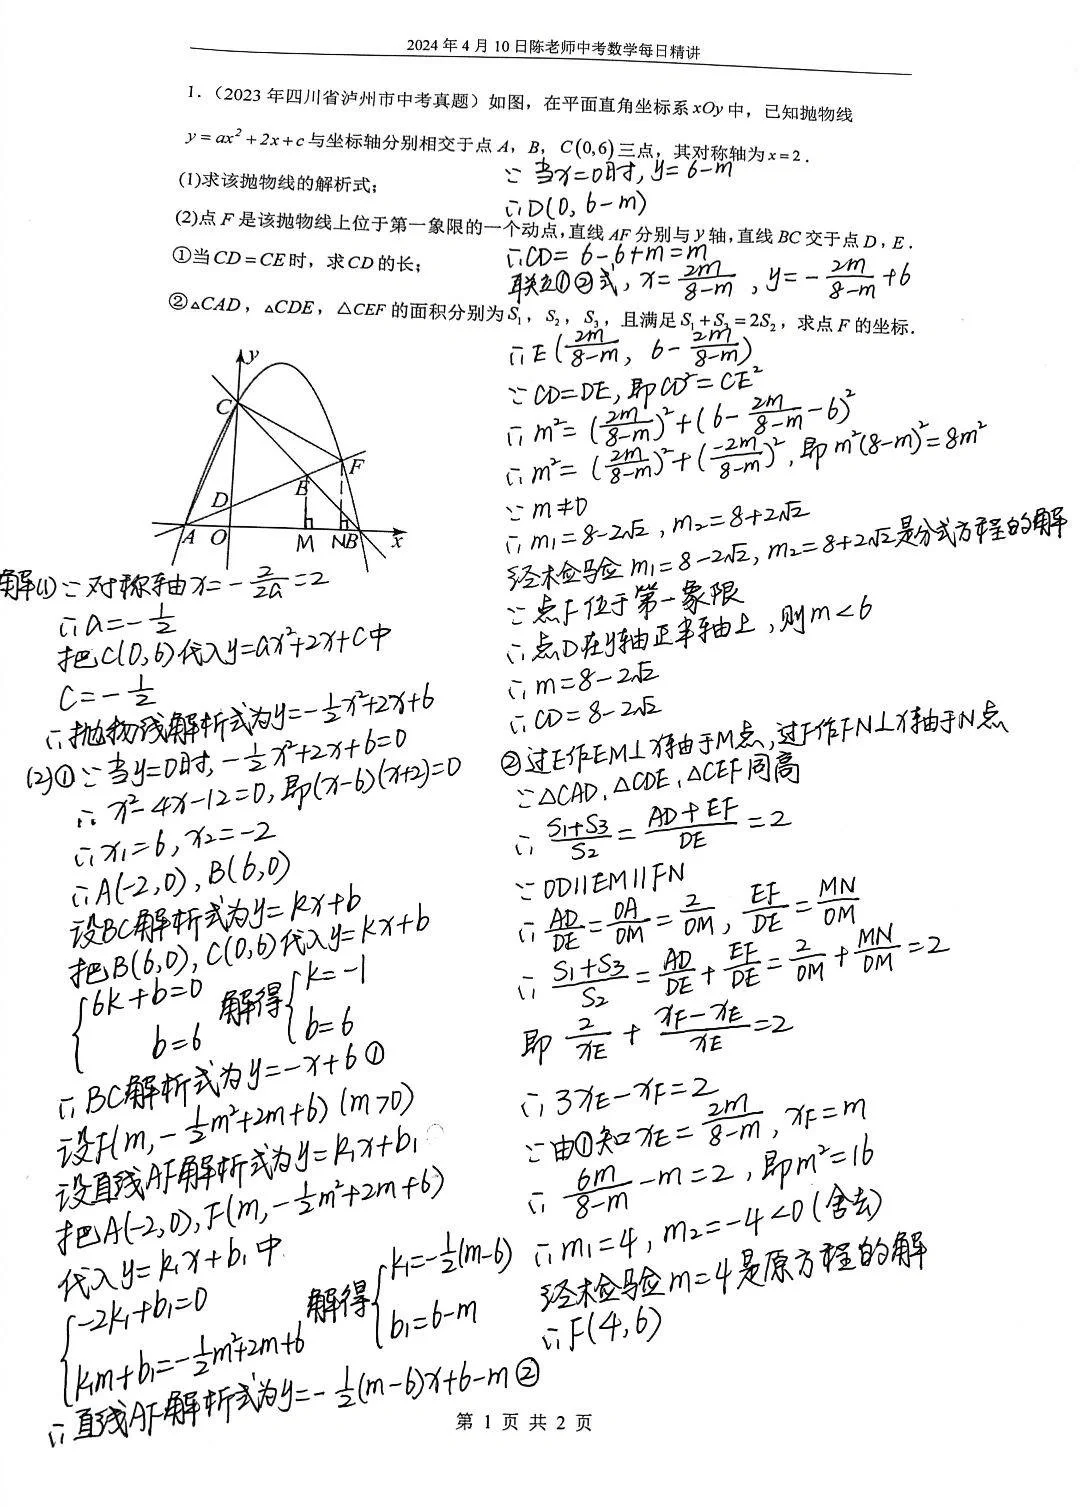 2024 年 4 月 10 日陈老师中考数学每日精讲
1.（2023 年四川省泸州市中考真题）如图，在平面直角坐标系 xOy 中，已知抛物线
y = ax² + 2x + c 与坐标轴分别相交于点 A，B，C(0,6) 三点，其对称轴为 x = 2.
(1)求该抛物线的解析式;
(2)点 F 是该抛物线上位于第一象限的一个动点,直线 AF 分别与 y 轴,直线 BC 交于点 D，E.
①当 CD = CE 时，求 CD 的长;
②△CAD，△CDE，△CEF 的面积分别为 S₁，S₂，S₃，且满足 S₁+S₃ = 2S₂，求点 F 的坐标.
y
C
F
E
D
A O M N B x
解(1)∵对称轴x=-2/2a=2
∴a=-1/2
把C(0,6)代入y=ax²+2x+c中
C=-1/2
∴抛物线解析式为y=-1/2x²+2x+6
(2)①∵当y=0时,-1/2x²+2x+6=0
∴x²-4x-12=0,即(x-6)(x+2)=0
∴x₁=6,x₂=-2
∴A(-2,0),B(6,0)
设BC解析式为y=kx+b
把B(6,0),C(0,6)代入y=kx+b
{6k+b=0 解得{k=-1
b=6 b=6
∴BC解析式为y=-x+6①
设F(m,-1/2m²+2m+6)(m>0)
设直线AF解析式为y=k₁x+b₁
把A(-2,0),F(m,-1/2m²+2m+6)
代入y=k₁x+b₁中
{-2k₁+b₁=0 解得{k₁=-1/2(m-6)
k₁m+b₁=-1/2m²+2m+6 b₁=6-m
∴直线AF解析式为y=-1/2(m-6)x+6-m②
∵当x=0时,y=6-m
∴D(0,6-m)
∴CD=6-6+m=m
联立①②式,x=2m/8-m,y=-2m/8-m+6
∴E(2m/8-m,6-2m/8-m)
∵CD=DE,即CD²=CE²
∴m²=(2m/8-m)²+(6-2m/8-m-6)²
∴m²=(2m/8-m)²+(-2m/8-m)²,即m²(8-m)²=8m²
∵m≠0
∴m₁=8-2√2,m₂=8+2√2
经检验m₁=8-2√2,m₂=8+2√2是分式方程的解
∵点F位于第一象限
∴点D在y轴正半轴上,则m<6
∴m=8-2√2
∴CD=8-2√2
②过E作EM⊥x轴于M点,过F作FN⊥x轴于N点
∵△CAD,△CDE,△CEF同高
∴S₁+S₃/S₂=AD+EF/DE=2
∵OD∥EM∥FN
∴AD/DE=OA/OM=2/OM,EF/DE=MN/OM
∴S₁+S₃/S₂=AD/DE+EF/DE=2/OM+MN/OM=2
即2/xE+xF-xE/xE=2
∴3xE-xF=2
∵由①知xE=2m/8-m,xF=m
∴6m/8-m-m=2,即m²=16
∴m₁=4,m₂=-4<0(舍去)
经检验m=4是原方程的解
∴F(4,6)
第 1 页 共 2 页